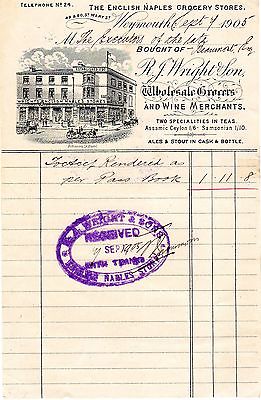 TELEPHONE No 24.
THE ENGLISH NAPLES GROCERY STORES.
49 & 50, ST MARY ST
Weymouth Sept 9 1905
M The Executors of the late
BOUGHT OF
R. J. Wright & Son,
Wholesale Grocers
AND WINE MERCHANTS.
TWO SPECIALITIES IN TEAS.
Assamic Ceylon 1/6 Samsonian 1/10.
ALES & STOUT IN CASK & BOTTLE.
Goods Rendered as
per Pass Book 1 - 11 - 8
WRIGHT & SONS
RECEIVED
9 SEP 1905
WITH THANKS
ENGLISH NAPLES STORES